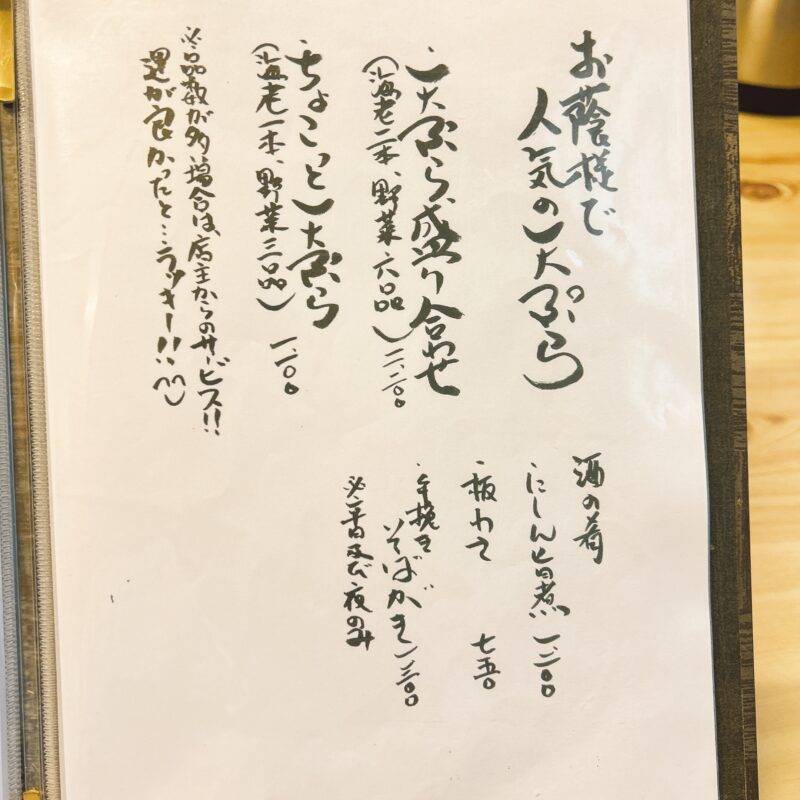 お蔭様で
人気の天ぷら
・天ぷら盛り合わせ
(海老二本、野菜六品) 二、二〇〇
・ちょこっと天ぷら
(海老一本、野菜三品) 一、一〇〇
※品数が多い場合は、店主からのサービス!!
運が良かったと…ラッキー!! ^^
酒の肴
・にしん旨煮 一、二〇〇
・板わさ 七五〇
・手挽き
そばがき 一、三〇〇
※平日及び夜のみ